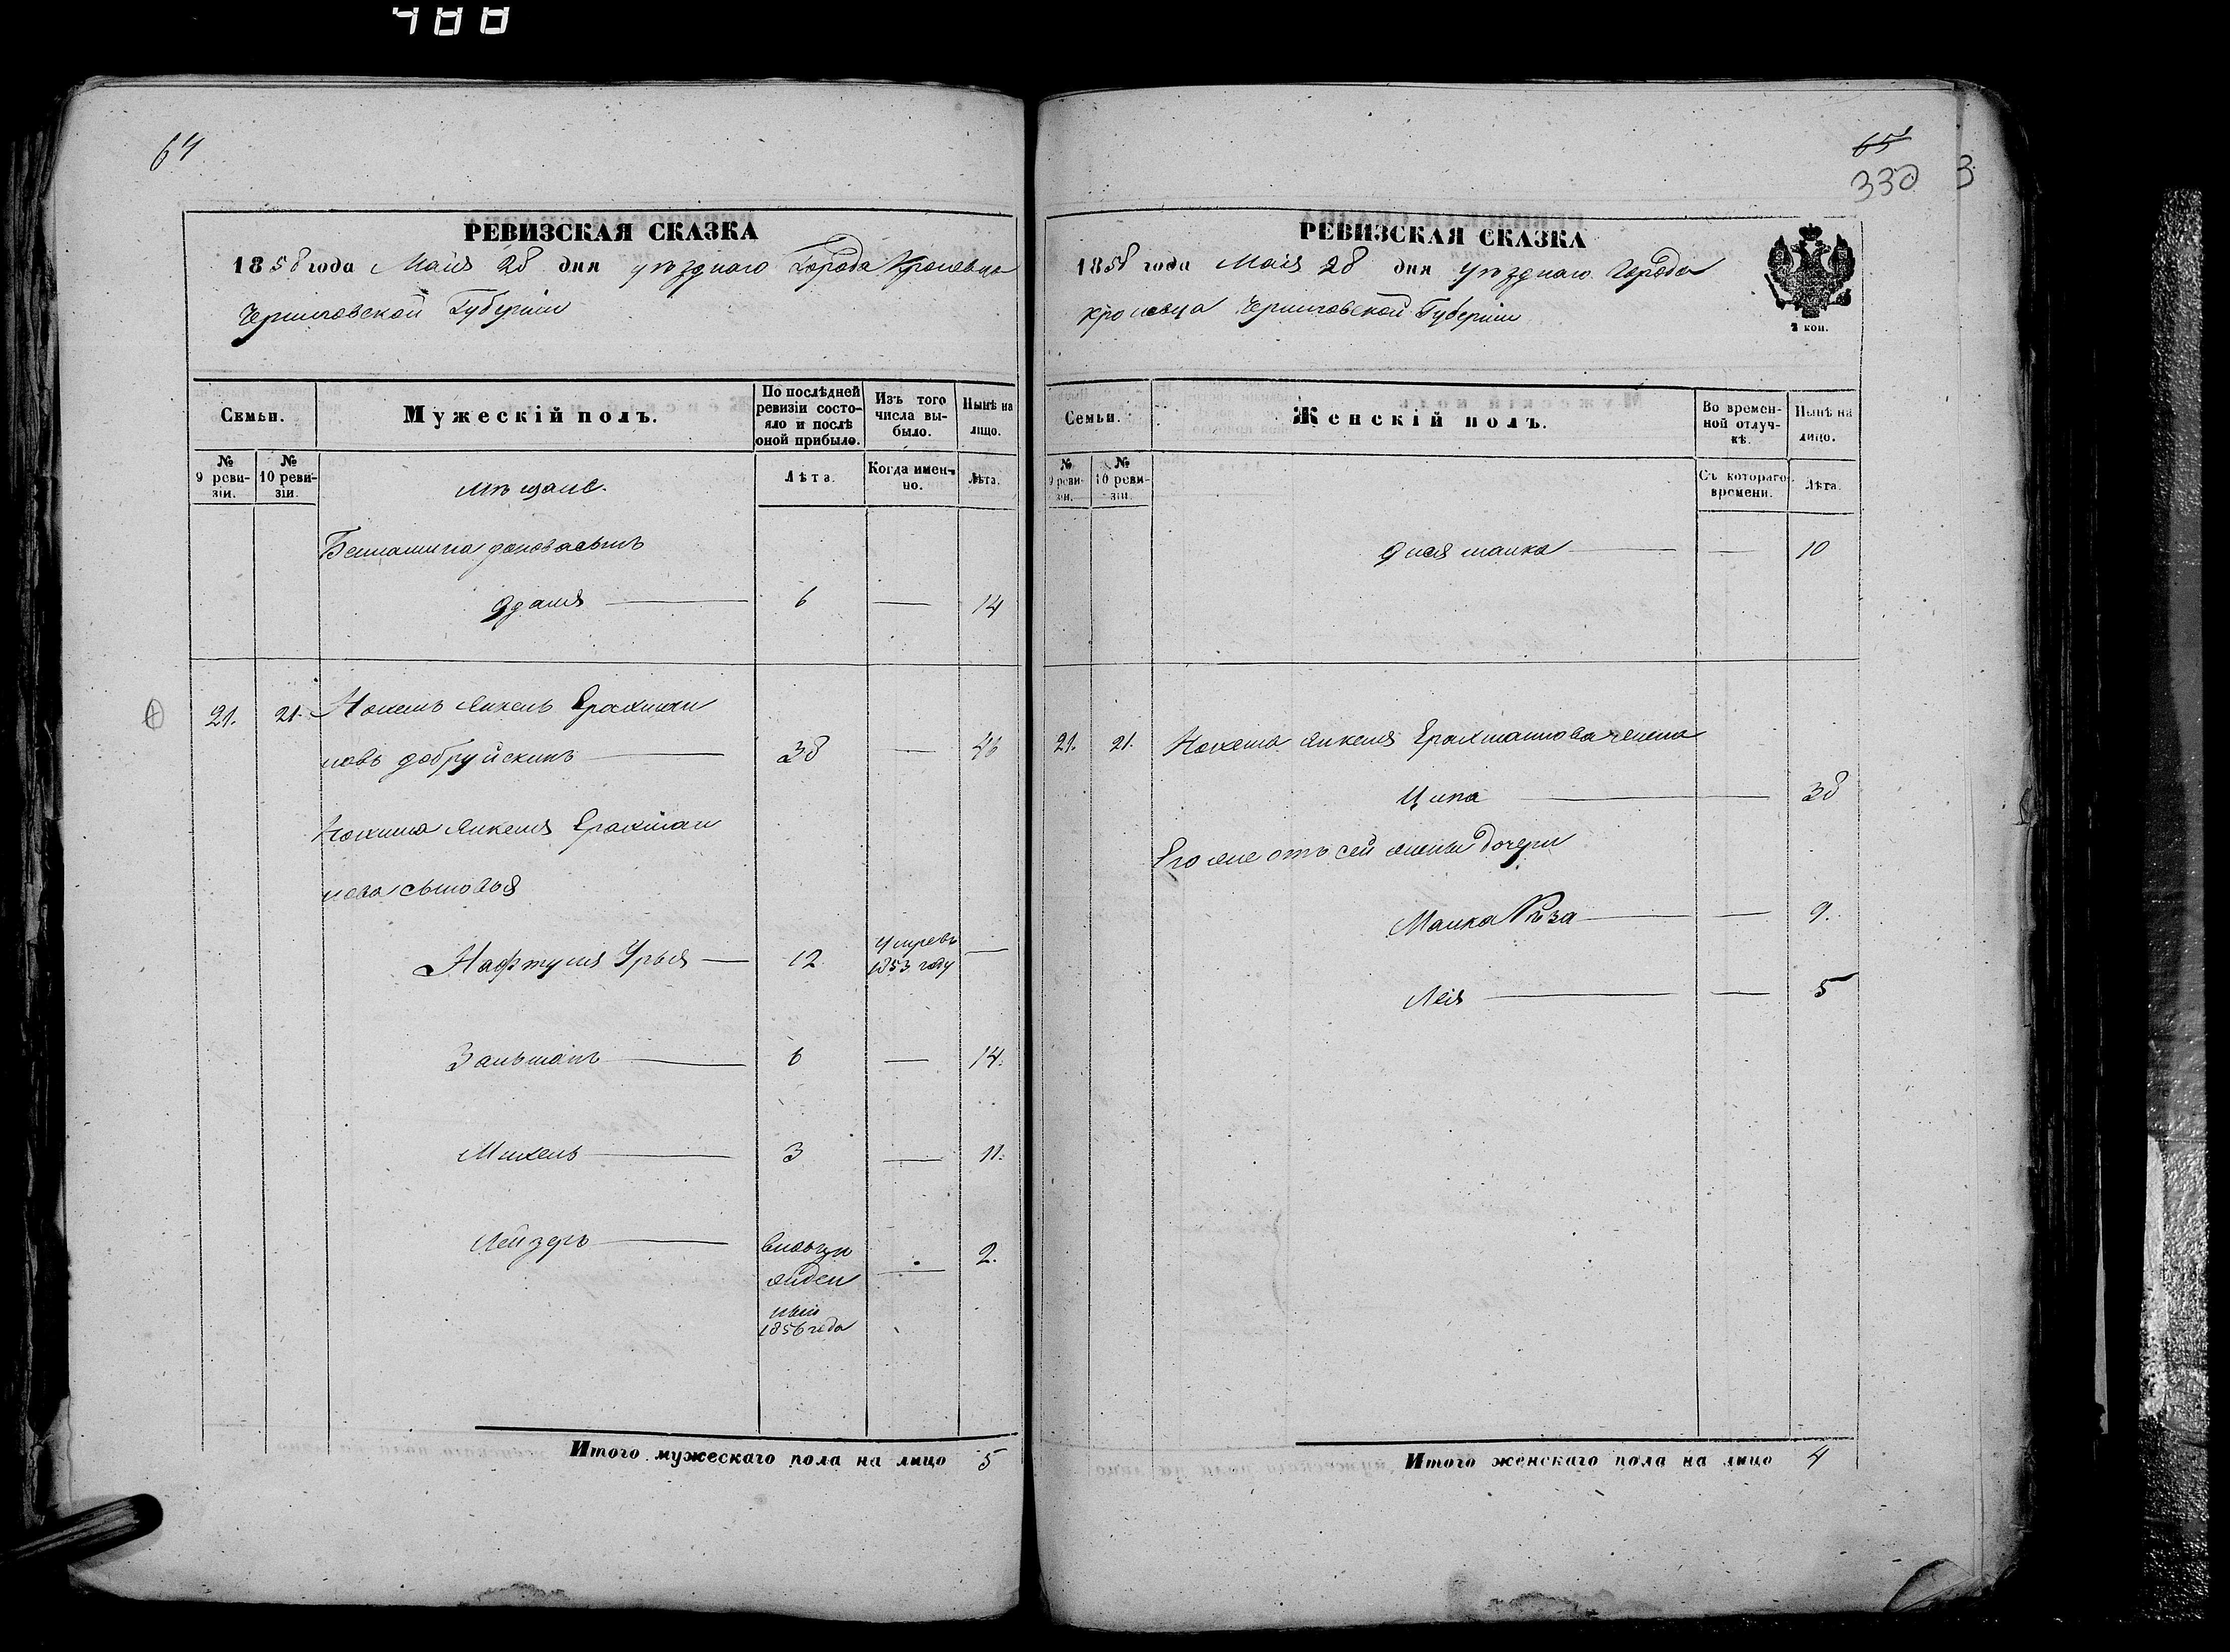 488
64
РЕВИЗСКАЯ СКАЗКА
1858 года Маія 28 дня уѣзднаго Города Кролевца
Черниговской Губерніи
Семьи.
Мужескій полъ.
По послѣдней ревизіи состояло и послѣ оной прибыло.
Изъ того числа выбыло.
Нынѣ на лицо.
№ 9 ревизіи.
№ 10 ревизіи.
мѣщане.
Лѣта.
Когда именно.
Лѣта.
сынъ
6 — 14
21. 21. Нохемъ Янкель Ерахмиэл
новъ добруйскинъ 38 — 46
Нохима Янкеля
нова сыновья
Нафтуля Урья — 12 Умре въ 1853 году —
Зальманъ 6 — 14.
Михель 3 — 11.
Лейзеръ
вновь рожден
ный
1856 года — 2.
Итого мужескаго пола на лицо 5
65
330 3
РЕВИЗСКАЯ СКАЗКА
1858 года Маія 28 дня уѣзднаго Города
Кролевца Черниговской Губерніи
2 коп.
Семьи.
Женскій полъ.
Во временной отлучкѣ.
Нынѣ на лицо.
№ 9 ревизіи.
№ 10 ревизіи.
Съ котораго времени.
Лѣта.
малка — 10
21. 21. Нохема Янкеля жена
Ципа 38
Его же отъ сей жены дочери
Малка Рѣза — 9.
Лея — 5
Итого женскаго пола на лицо 4